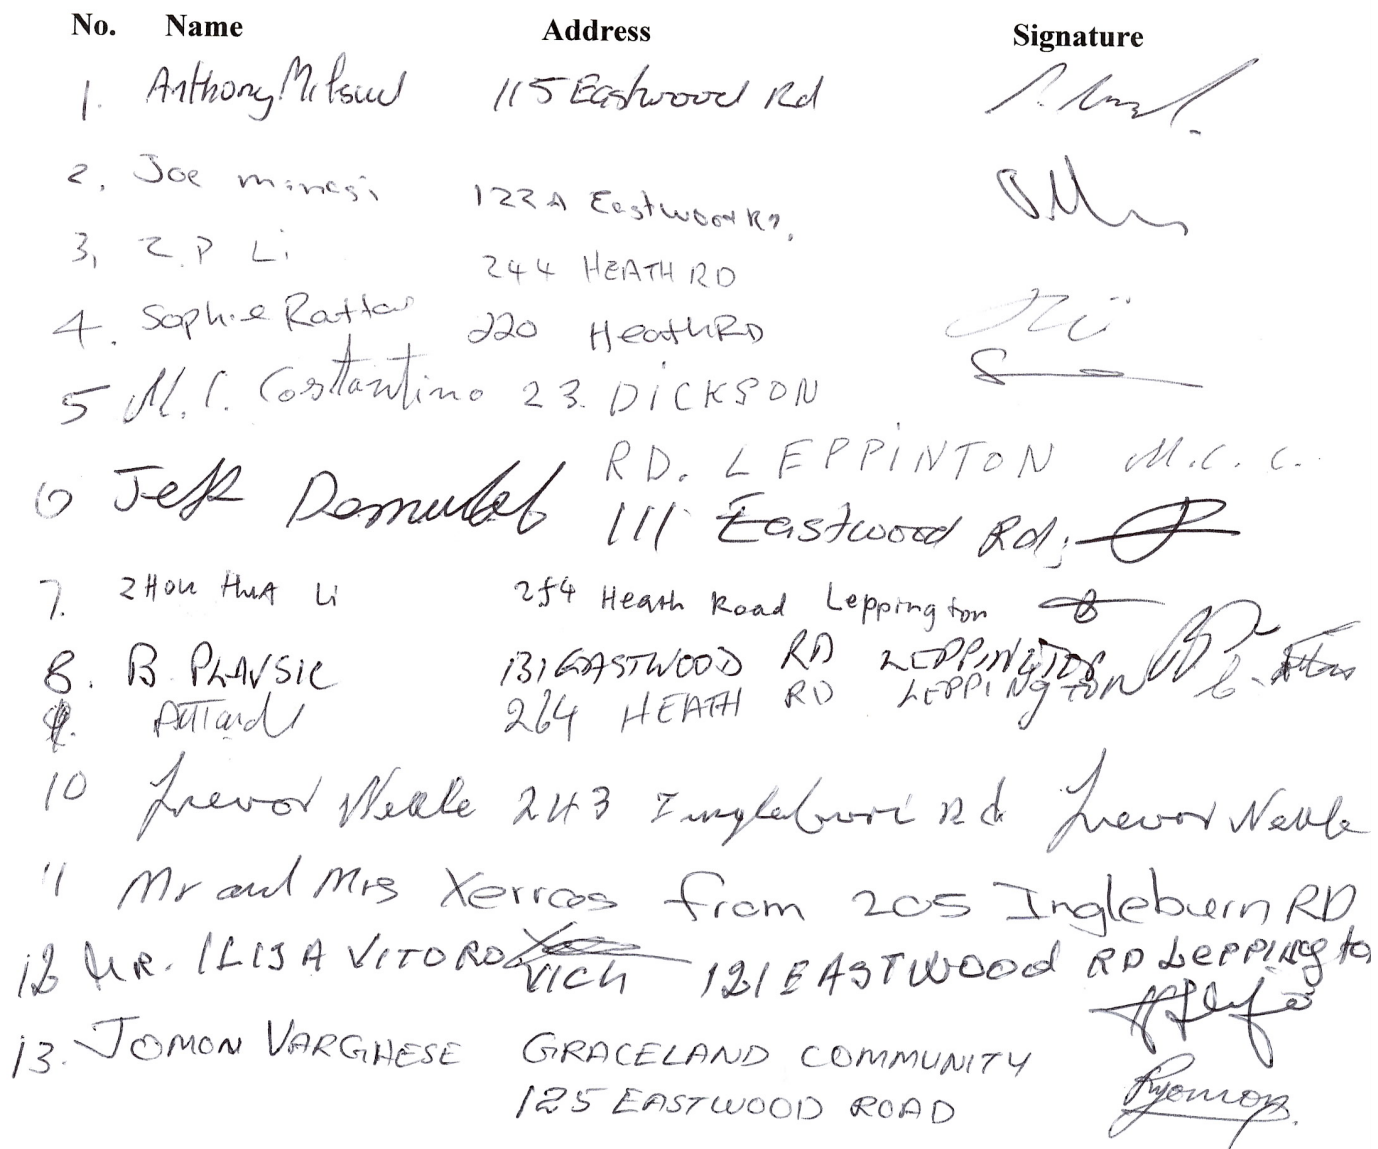 No. Name Address Signature
1. Anthony 115 Eastwood Rd
2. Joe minesi 122A Eastwood Rd.
3, Z.P Li 244 HEATH RD
4. Sophie Rattos 220 Heath RD
5 M.C. Costantino 23. DICKSON
RD. LEPPINTON M.C.C.
6 Jeff 111 Eastwood Rd,
7. ZHOU HUA Li 254 Heath Road Leppington
8. B PLAVSIC 131 EASTWOOD RD LEPPINGTON
9. Attard 264 HEATH RD LEPPINGTON
10 Trevor Neale 243 Ingleburn Rd Trevor Neale
11 Mr and Mrs Xerras from 205 Ingleburn RD
12 MR. ILIJA VITOROVICH 121 EASTWOOD RD LEPPINGto
13. JOMON VARGHESE GRACELAND COMMUNITY
125 EASTWOOD ROAD